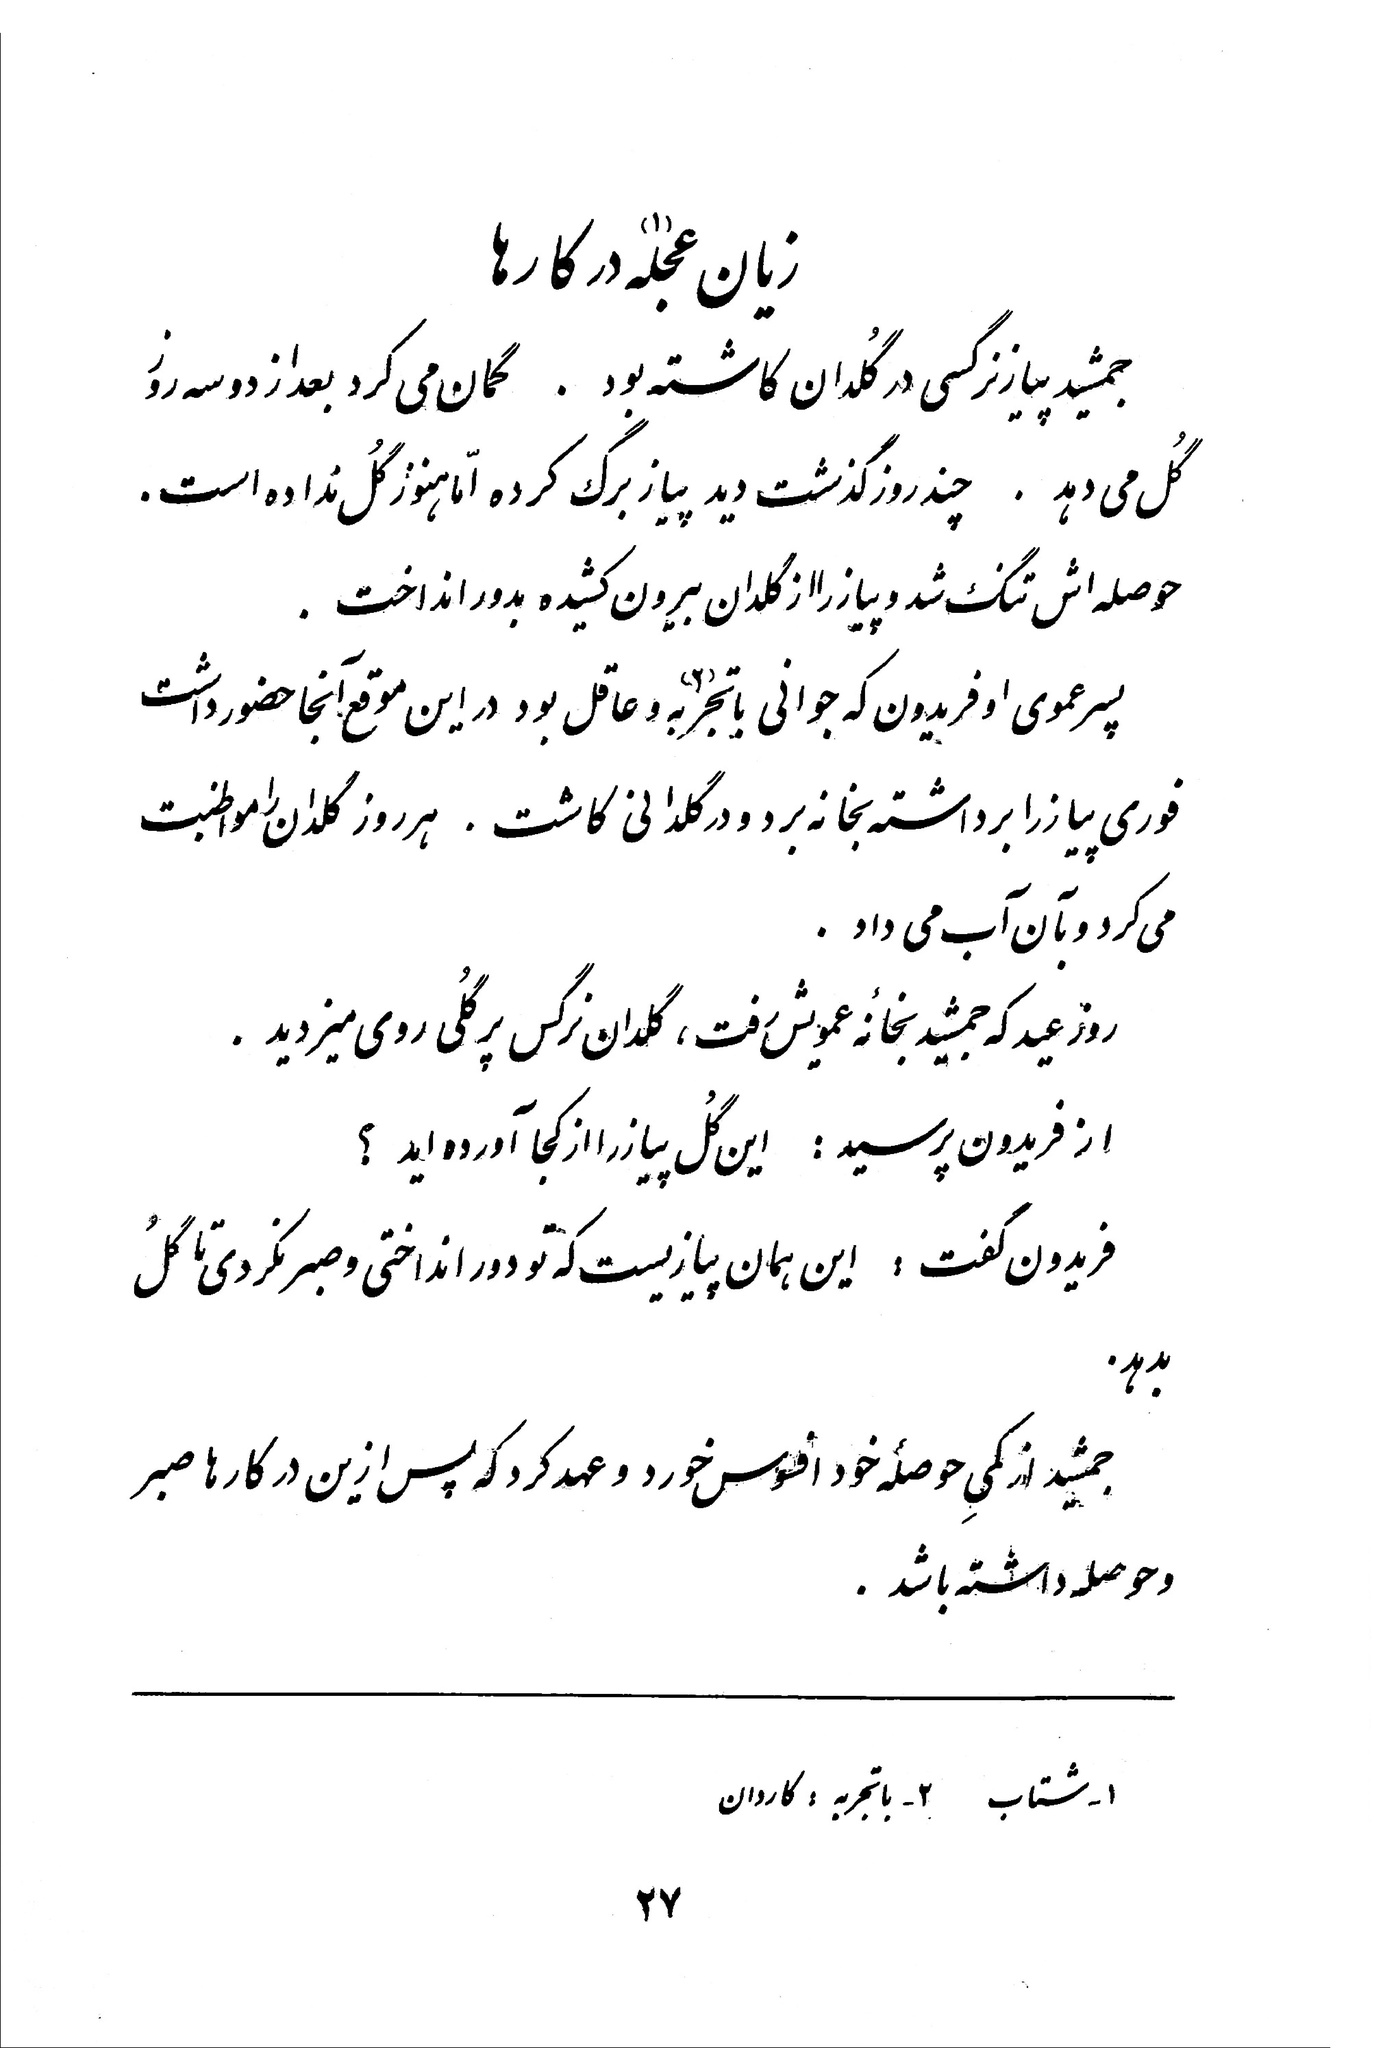 زیان عجله(۱) در کارها
جمشید پیاز نرگسی در گُلدان کاشته بود . گمان می کرد بعد از دو سه روز
گُل می دهد . چند روز گذشت دید پیاز برگ کرده امّا هنوز گُل نداده است .
حوصله اش تنگ شد و پیاز را از گلدان بیرون کشیده بدور انداخت .
پسر عموی او فریدون که جوانی باتجربه(۲) و عاقل بود در این موقع آنجا حضور داشت
فوری پیاز را برداشته بخانه برد و در گلدانی کاشت . هر روز گلدان را مواظبت
می کرد و بآن آب می داد .
روز عید که جمشید بخانهٔ عمویش رفت ، گلدان نرگس پر گُلی روی میز دید .
از فریدون پرسید : این گُل پیاز را از کجا آورده اید ؟
فریدون گفت : این همان پیازیست که تو دور انداختی و صبر نکردی تا گُل
بدهد .
جمشید از کمیِ حوصلهٔ خود افسوس خورد و عهد کرد که پس ازین در کارها صبر
و حوصله داشته باشد .
۱ - شتاب ۲ - باتجربه : کاردان
۲۷